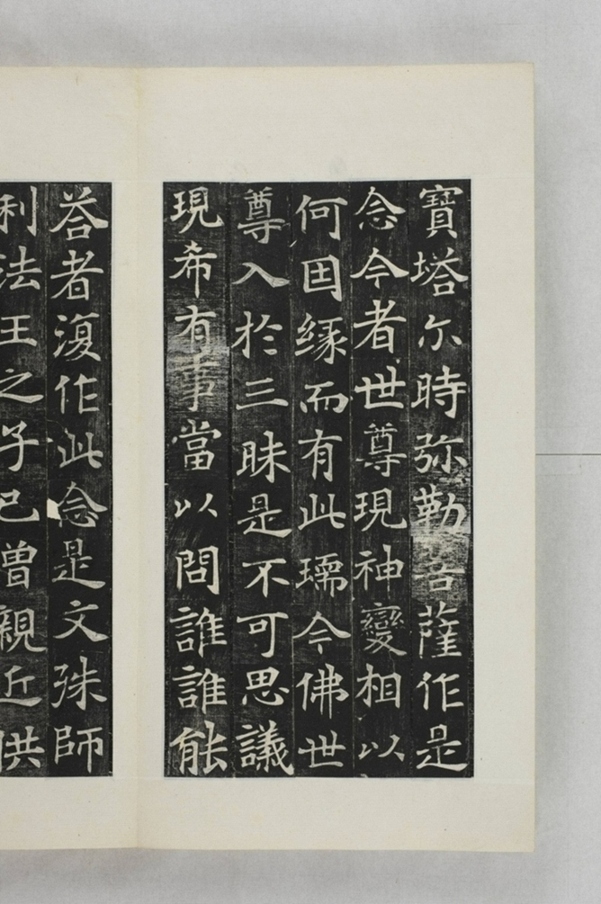 寶塔尒時弥勒菩薩作是
念今者世尊現神變相以
何因緣而有此瑞今佛世
尊入於三昧是不可思議
現希有事當以問誰誰能
荅者復作此念是文殊師
利法王之子已曾親近供